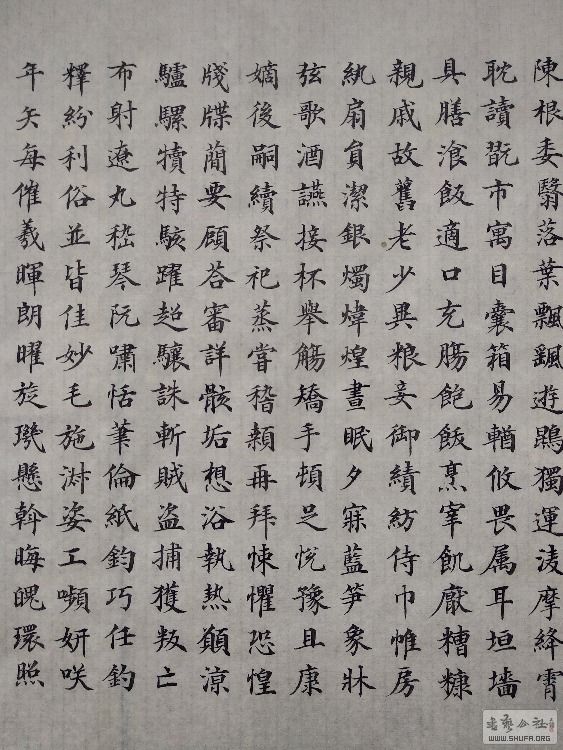 陳根委翳落葉飄飖遊鵾獨運淩摩絳霄
耽讀翫市寓目囊箱易輶攸畏属耳垣墻
具膳湌飯適口充膓飽飫烹宰飢厭糟糠
親戚故舊老少異粮妾御績紡侍巾帷房
紈扇員潔銀燭煒煌晝眠夕寐藍笋象牀
弦歌酒讌接杯舉觴矯手頓足悅豫且康
嫡後嗣續祭祀蒸嘗稽顙再拜悚懼恐惶
牋牒蕳要顧荅審詳骸垢想浴執熱願涼
驢騾犢特駭躍超驤誅斬賊盗捕獲叛亡
布射遼丸嵇琴阮嘯恬筆倫紙鈞巧任釣
釋紛利俗並皆佳妙毛施淑姿工嚬妍咲
年矢每催羲暉朗曜旋璣懸斡晦魄環照
书艺公社
WWW.SHUFA.ORG